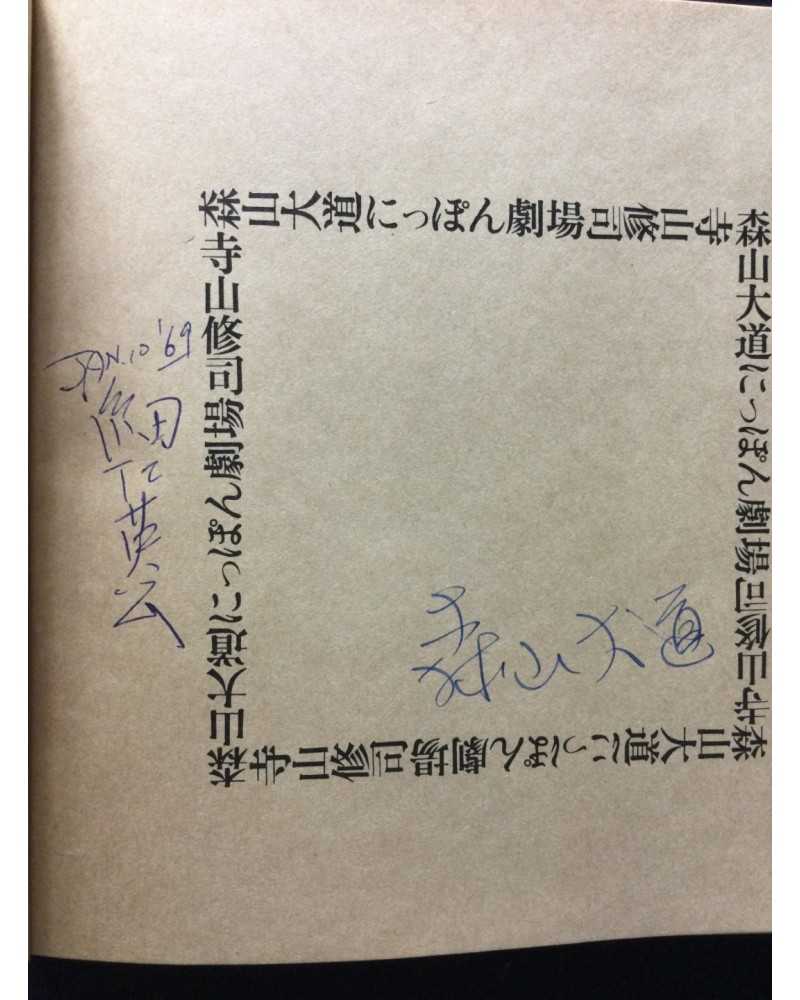 森山大道にっぽん劇場司修山寺
森山大道にっぽん劇場司修山寺
寺山修司場劇んぽっに道大山森
森寺山修司場劇んぽっに道大山森
JAN.10 '69
森山大道